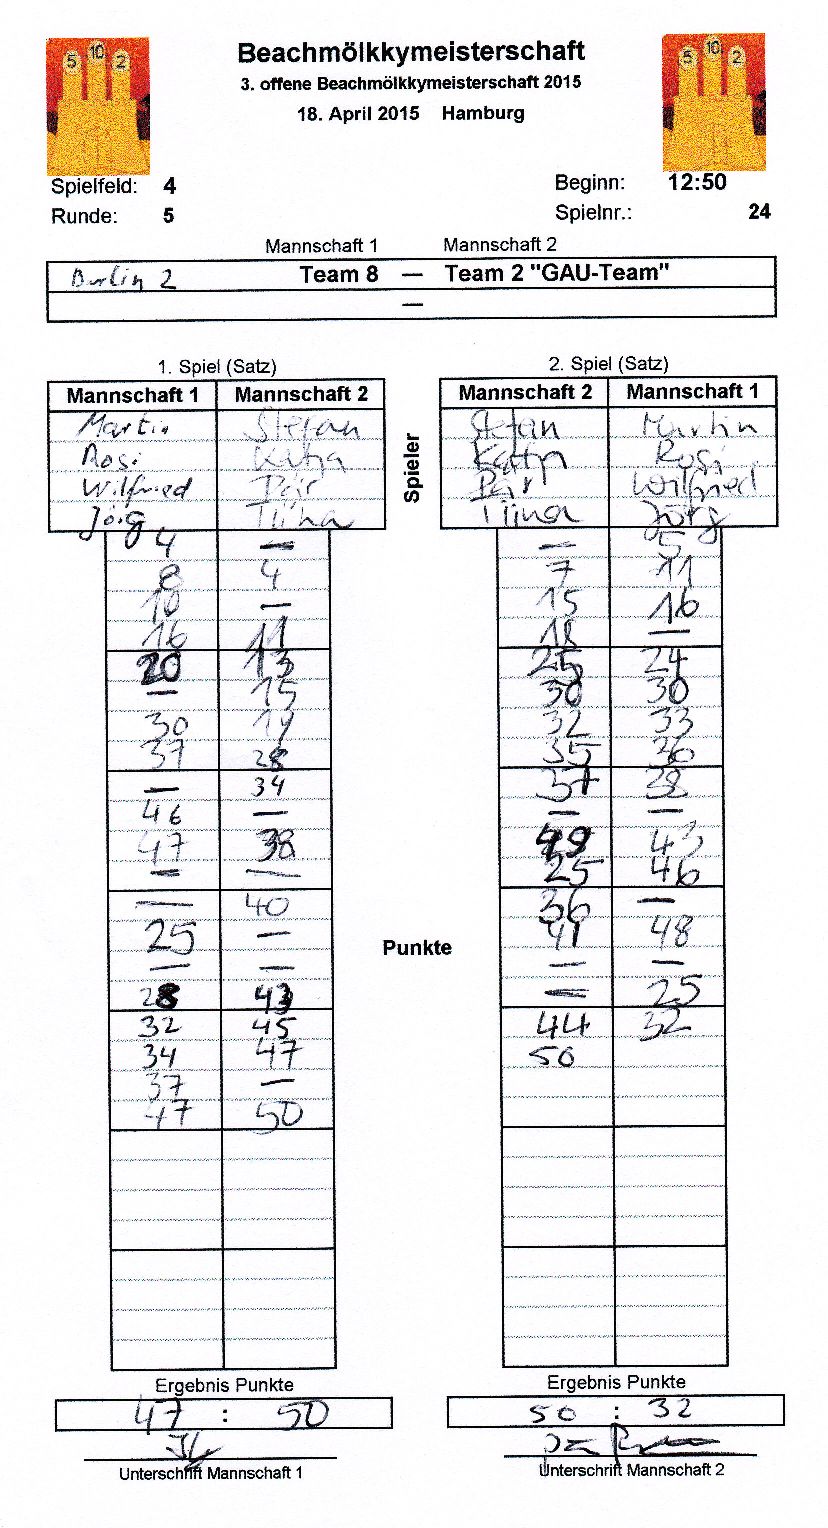 5 10 2 Beachmölkkymeisterschaft 5 10 2
3. offene Beachmölkkymeisterschaft 2015
18. April 2015 Hamburg
Spielfeld: 4 Beginn: 12:50
Runde: 5 Spielnr.: 24
Mannschaft 1 Mannschaft 2
Berlin 2 Team 8 — Team 2 "GAU-Team"
—
1. Spiel (Satz) 2. Spiel (Satz)
Mannschaft 1 Mannschaft 2 Mannschaft 2 Mannschaft 1
Spieler
Martin Stefan Stefan Martin
Rosi Katja Katja Rosi
Wilfried Pär Pär Wilfried
Jörg Tiina Tiina Jörg
4 — — 5
8 4 7 11
10 — 15 16
16 11 18 —
20 13 25 24
— 15 30 30
30 19 32 33
37 28 35 36
— 34 37 38
46 — — —
47 38 49 43
— — 25 46
— 40 36 —
25 — 41 48
Punkte
— — — —
28 43 — 25
32 45 44 32
34 47 50
37 —
47 50
Ergebnis Punkte Ergebnis Punkte
47 : 50 50 : 32
Unterschrift Mannschaft 1 Unterschrift Mannschaft 2